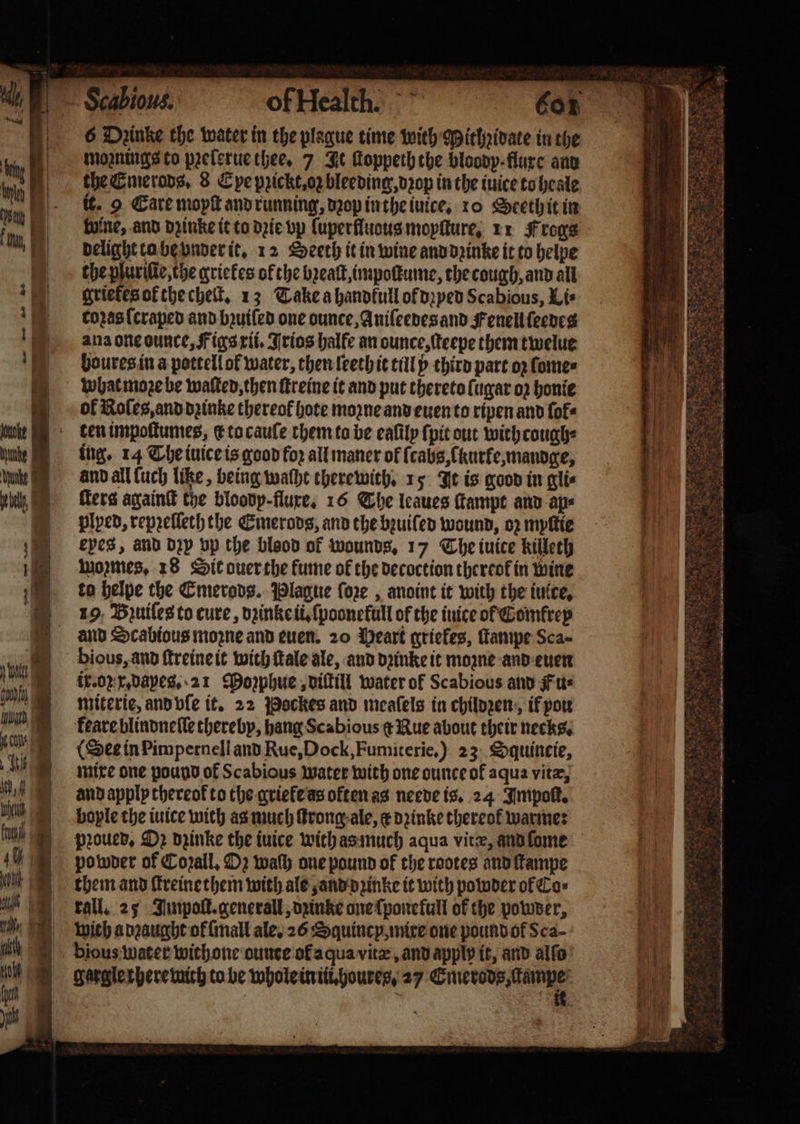 Scabious. of Health. 601
6 Drinke the water in the plague time with Mithridate in the
mornings to preserue thee. 7 It stoppeth the bloody-fluxe and
the Emerods. 8 Eye prickt, or bleeding, drop in the iuice to heale
it. 9 Eare moyst and running, drop in the iuice. 10 Seeth it in
wine, and drinke it to drie vp superfluous moysture. 11 Frogs
delight to be vnder it. 12 Seeth it in wine and drinke it to helpe
the plurisie, the griefes of the breast, impostume, the cough, and all
griefes of the chest. 13 Take a handfull of dryed Scabious, Li-
coras scraped and bruised one ounce, Aniseedes and Fenell seedes
ana one ounce, Figs xii. Irios halfe an ounce, steepe them twelue
houres in a pottell of water, then seeth it till þ third part or some-
what more be wasted, then streine it and put thereto sugar or honie
of Roses, and drinke thereof hote morne and euen to ripen and sof-
ten impostumes, & to cause them to be easily spit out with cough-
ing. 14 The iuice is good for all maner of scabs, skurfe, mandge,
and all such like, being washt therewith. 15 It is good in gli-
sters against the bloody-fluxe. 16 The leaues stampt and ap-
plyed, represseth the Emerods, and the bruised wound, or mystie
eyes, and dry vp the blood of wounds. 17 The iuice killeth
wormes. 18 Sit ouer the fume of the decoction thereof in wine
to helpe the Emerods. Plague sore, anoint it with the iuice.
19. Bruises to cure, drinke ii. spoonefull of the iuice of Comfrey
and Scabious morne and euen. 20 Heart griefes, stampe Sca-
bious, and streine it with stale ale, and drinke it morne and euen
ix. or x. dayes. 21 Morphue, distill water of Scabious and Fu-
miterie, and vse it. 22 Pockes and measels in children, if you
feare blindnesse thereby, hang Scabious & Rue about their necks.
(See in Pimpernell and Rue, Dock, Fumiterie.) 23 Squincie,
mixe one pound of Scabious water with one ounce of aqua vitæ,
and apply thereof to the griefe as often as neede is. 24 Impost.
boyle the iuice with as much strong ale, & drinke thereof warme:
proued. Or drinke the iuice with as much aqua vitæ, and some
powder of Corall. Or wash one pound of the rootes and stampe
them and streine them with ale, and drinke it with powder of Co-
rall. 25 Impost. generall, drinke one sponefull of the powder,
with a draught of small ale. 26 Squincy, mixe one pound of Sca-
bious water with one ounce of aqua vitæ, and apply it, and also
gargle therewith to be whole in iiii. houres. 27 Emerods, stampe
it